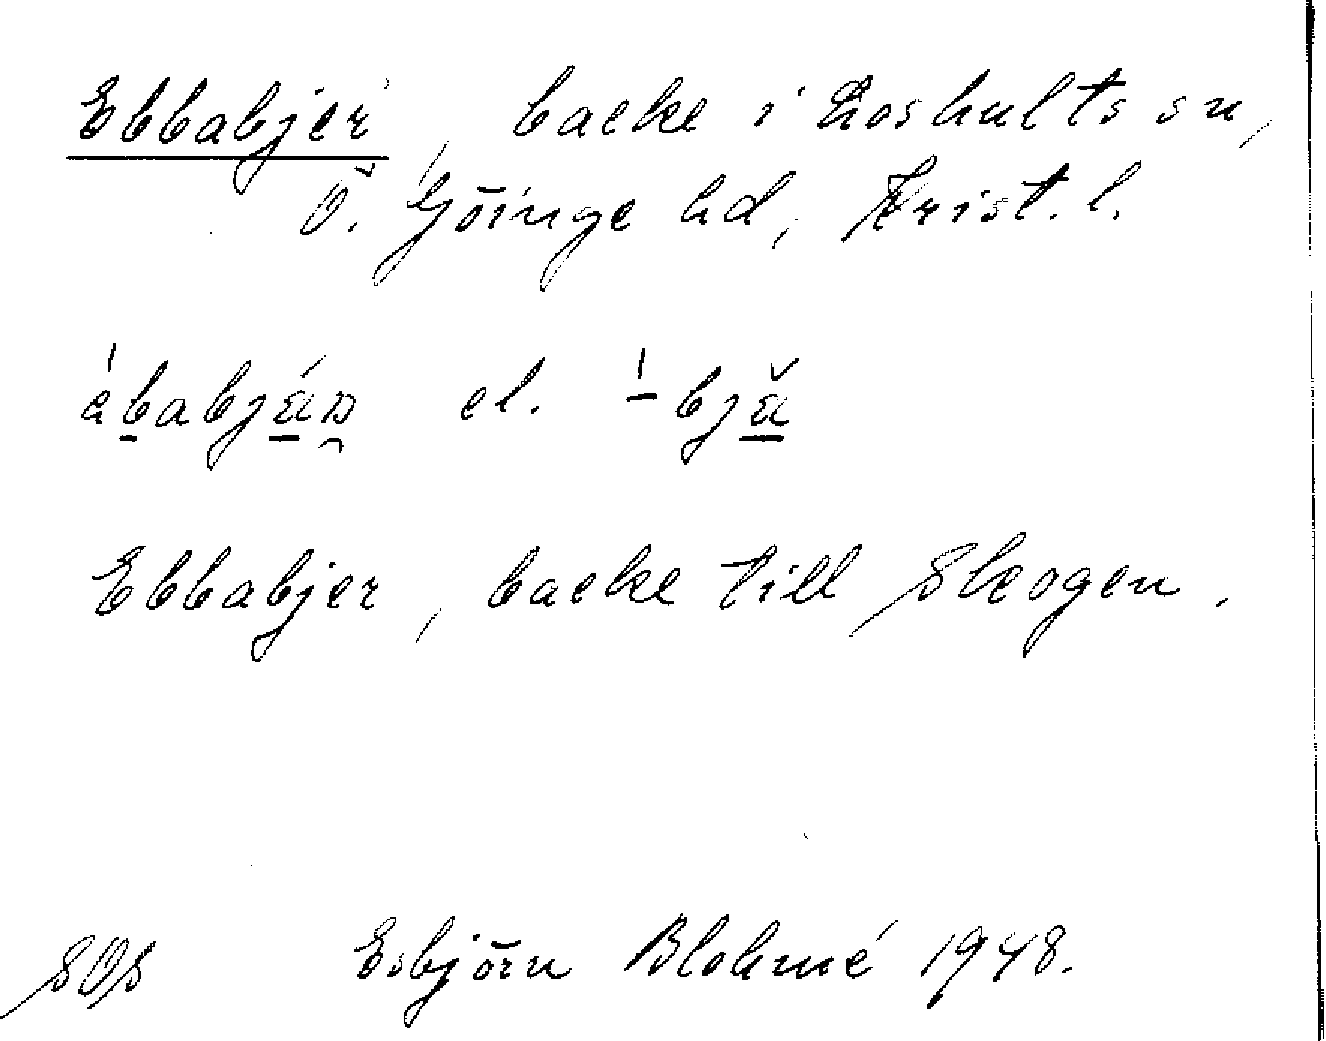 Ebbabjer, backe i Loshults sn,
Ö. Göinge hd, Krist. l.
el.
Ebbabjer, backe till Skogen.
SOS Esbjörn Blohmé 1948.